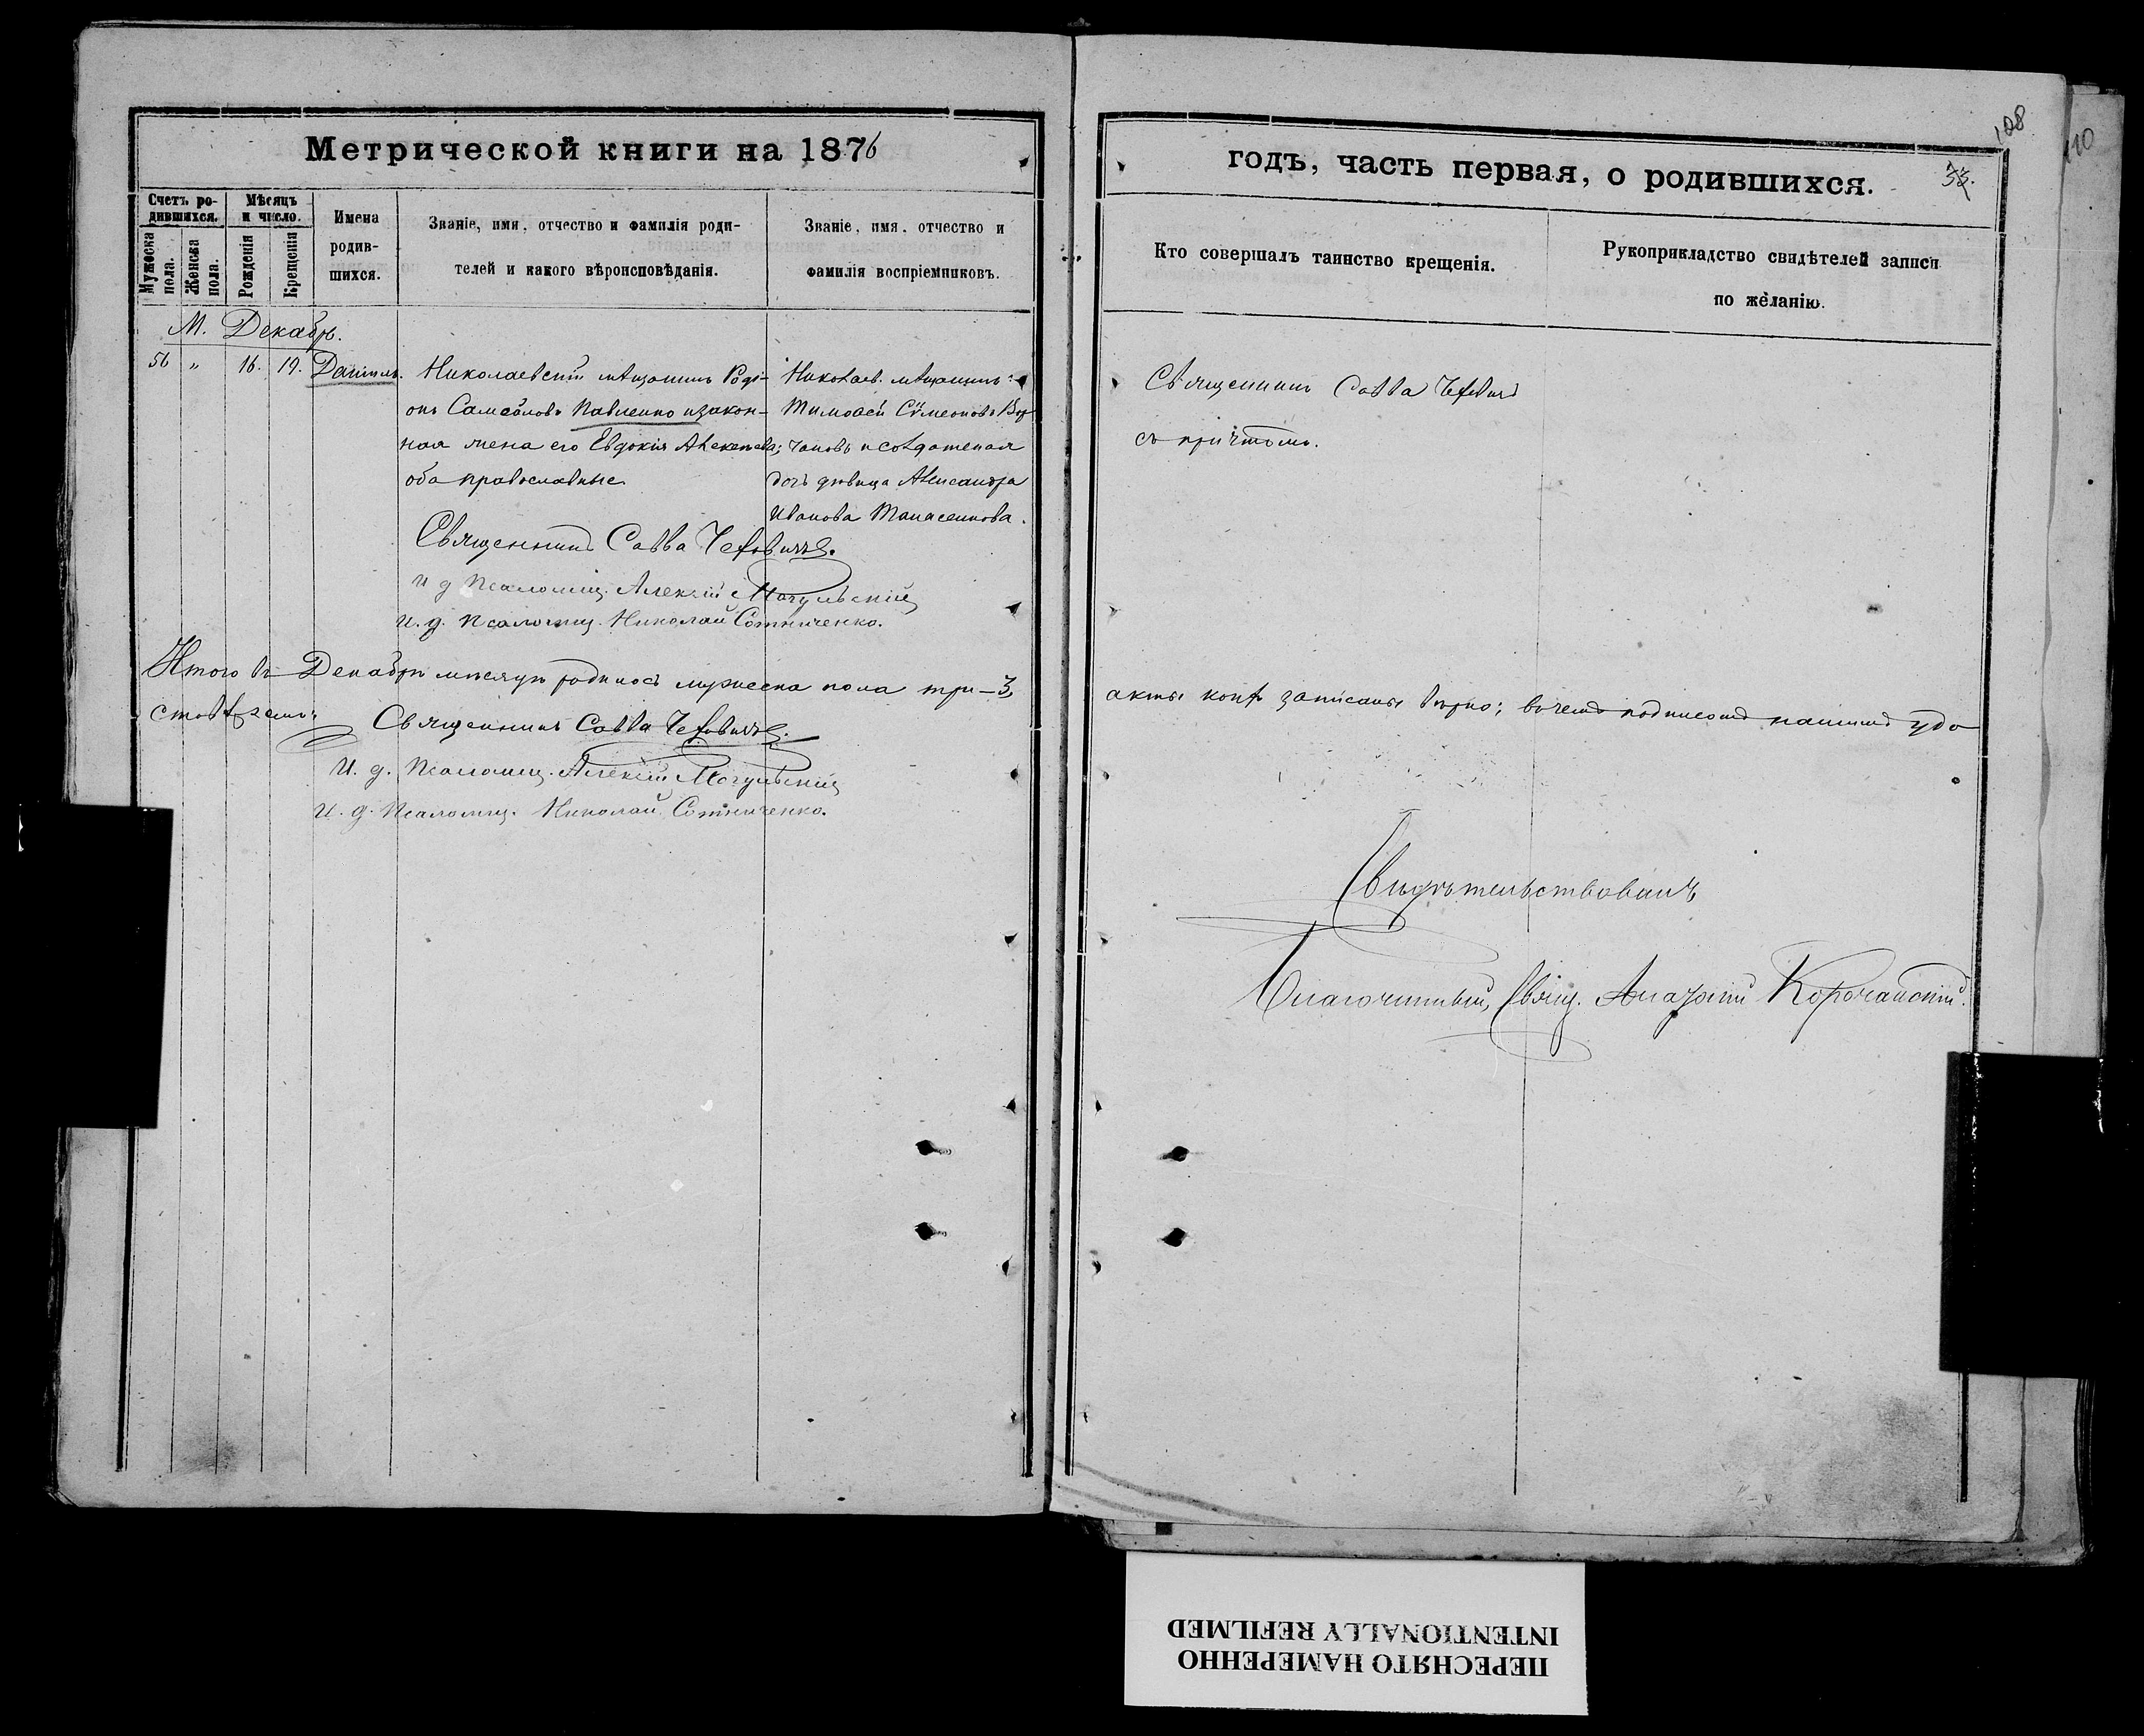 Метрической книги на 1876
Счетъ родившихся.
Мужеска пола.
Женска пола.
Мѣсяцъ и число.
Рожденія
Крещенія
Имена родившихся.
Званіе, имя, отчество и фамилія роди-
телей и какого вѣроисповѣданія.
Званіе, имя, отчество и
фамилія воспріемниковъ.
М. Декабрь.
56 " 16. 19. Даніилъ.
Николаевскій мѣщанинъ Роді-
онъ Самойловъ Павленко и закон-
ная жена его Евдокія Алексѣева;
оба православные.
Николаев. мѣщанинъ
Тимоѳей Сѵмеоновъ
и солдатская
дочь дѣвица Александра
Иванова Танасенкова.
Священникъ Савва
И д Псаломщ. Алексій Могульскій
И. д. Псаломщ. Николай Сотниченко.
Итого въ Декабрѣ мѣсяцѣ родилось мужеска пола три – 3,
Священникъ Савва
И. д. Псаломщ. Алексій Могульскій
И. д. Псаломщ. Николай Сотниченко.
108
110
годъ, часть первая, о родившихся.
33.
Кто совершалъ таинство крещенія.
Рукоприкладство свидѣтелей записи
по желанію.
Священникъ Савва
съ причтомъ.
акты коихъ записаны вѣрно; въ чемъ подписомъ нашимъ удо
Свидѣтельствовалъ
Благочинный, Свящ. Корочанскій.
ПЕРЕСНЯТО НАМЕРЕННО
INTENTIONALLY REFILMED